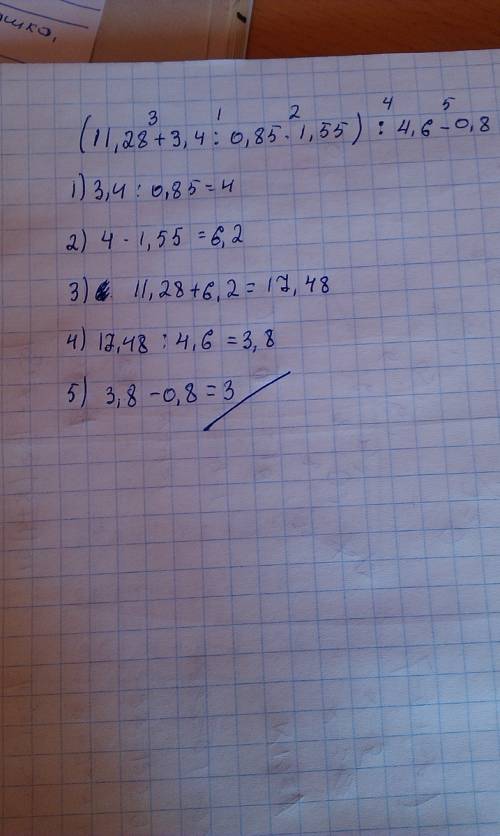 ошко,
3 1 2 4 5
(11,28+3,4 : 0,85 · 1,55) : 4,6 - 0,8
1) 3,4 : 0,85 = 4
2) 4 · 1,55 = 6,2
3) 11,28+6,2 = 17,48
4) 17,48 : 4,6 = 3,8
5) 3,8 - 0,8 = 3